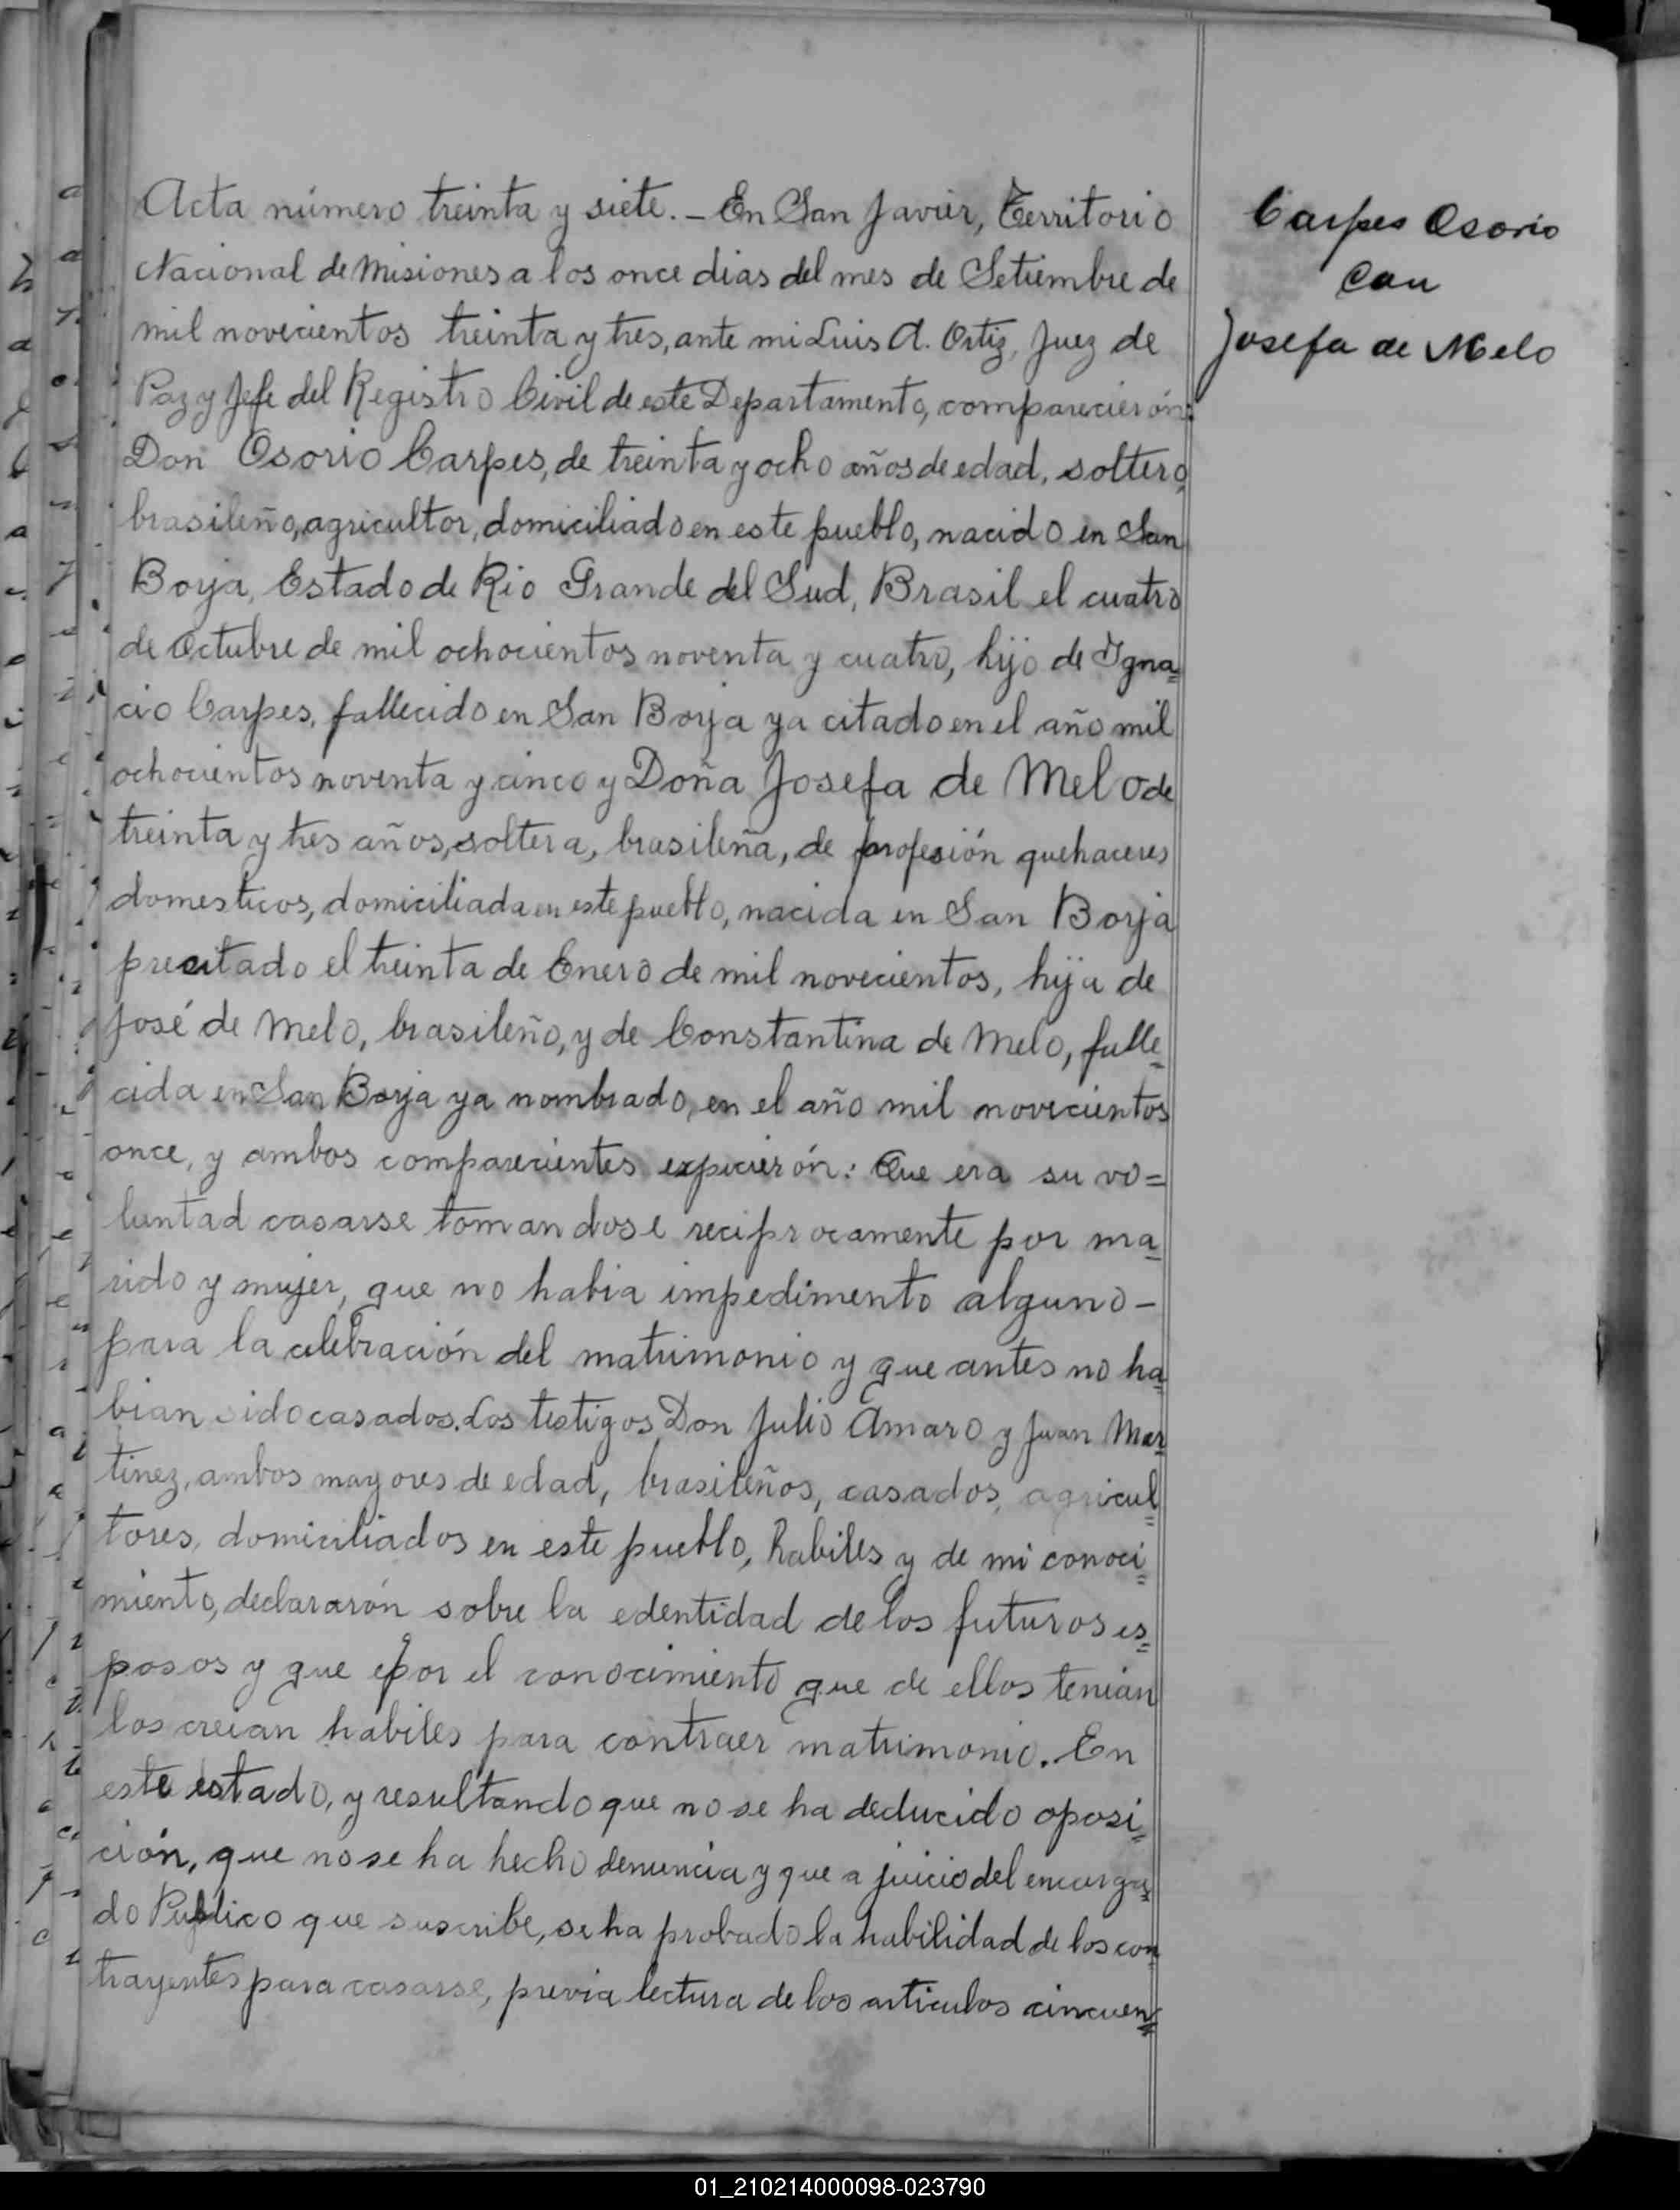 Acta número treinta y siete. – En San Javier, Territorio
Nacional de Misiones a los once dias del mes de Setiembre de
mil novecientos treinta y tres, ante mi Luis A. Ortiz, Juez de
Paz y Jefe del Registro Civil de este Departamento, comparecierón:
Don Osorio Carpes, de treinta y ocho años de edad, soltero,
brasileño, agricultor, domiciliado en este pueblo, nacido en San
Borja, Estado de Rio Grande del Sud, Brasil el cuatro
de Octubre de mil ochocientos noventa y cuatro, hijo de Igna=
cio Carpes, fallecido en San Borja ya citado en el año mil
ochocientos noventa y cinco y Doña Josefa de Melo de
treinta y tres años, soltera, brasileña, de profesión quehaceres
domesticos, domiciliada en este pueblo, nacida en San Borja
precitado el treinta de Enero de mil novecientos, hija de
José de Melo, brasileño, y de Constantina de Melo, falle=
cida en San Borja ya nombrado, en el año mil novecientos
once, y ambos comparecientes expucierón: Que era su vo=
luntad casarse tomandose reciprocamente por ma=
rido y mujer, que no habia impedimento alguno –
para la celebración del matrimonio y que antes no ha=
bian sido casados. Los testigos Don Julio Amaro y Juan Mar=
tinez, ambos mayores de edad, brasileños, casados, agricul=
tores, domiciliados en este pueblo, habiles y de mi conoci=
miento, declararón sobre la edentidad de los futuros es=
posos y que epor el conocimiento que de ellos tenian
los creian habiles para contraer matrimonio. En
este estado, y resultando que no se ha deducido oposi=
ción, que no se ha hecho denuncia y que a juicio del encarga=
do Publico que suscribe, se ha probado la habilidad de los con=
trayentes para casarse, previa lectura de los articulos cincuen=
Carpes Osorio
con
Josefa de Melo
01_210214000098-023790